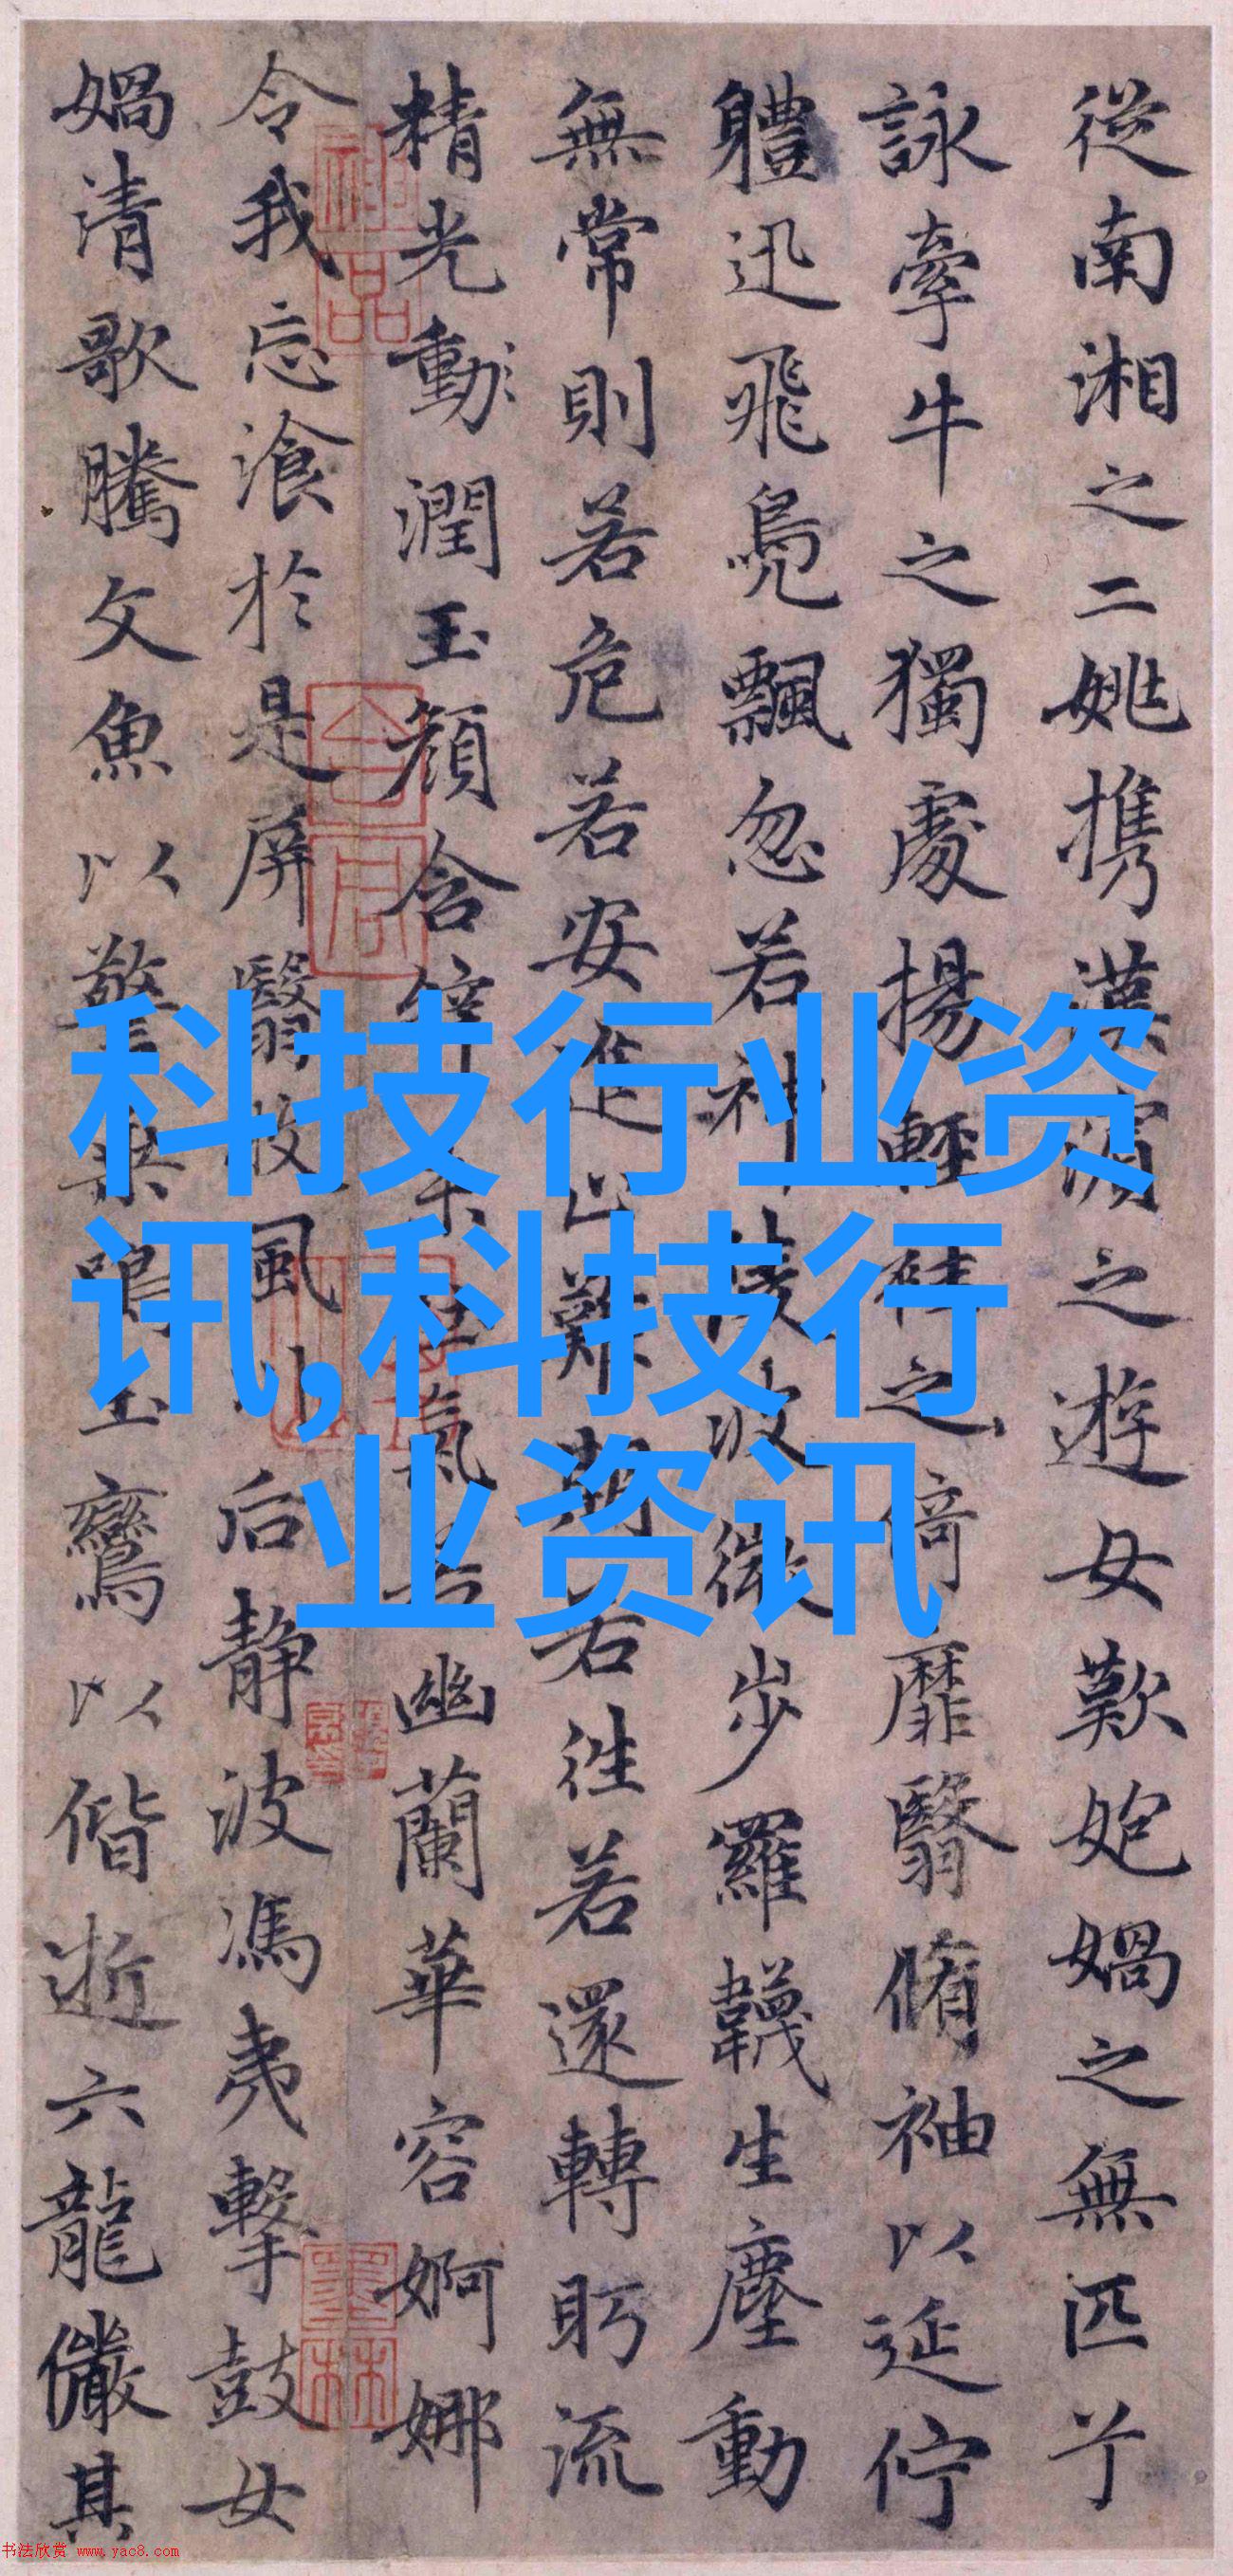 科技行业资
讯,科技行
业资讯
從南湘之二姚携漢濱之遊女歎媧之無匹兮
詠牽牛之獨處揚輕袿之倚靡翳脩袖以延佇
軆迅飛鳧飄忽若神陵波微步羅韈生塵動
無常則若危若安進止難期若往若還轉眄流
精光動潤玉顏含辭未吐氣若幽蘭華容婀娜
令我忘飡於是屏翳收風川后静波馮夷擊鼓女
媧清歌騰文魚以警乗鳴玉鸞以偕逝六龍儼其
神品
墨林
书法欣赏 www.yac8.com